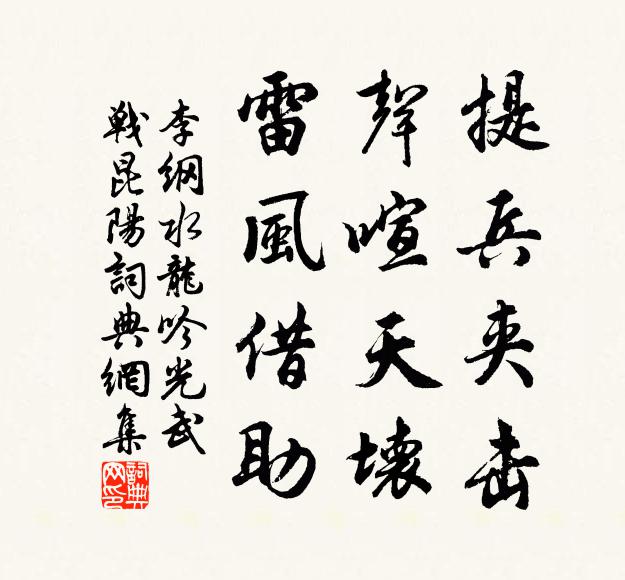 提兵夾击
聲喧天壞
雷風借助
李綱水龍吟光武
戰昆陽詞典網集
詞典網印